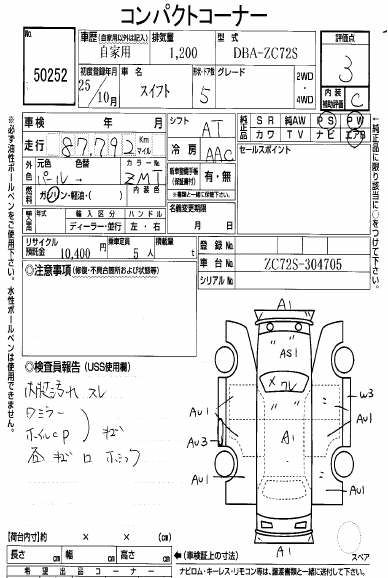 コンパクトコーナー
No. 50252
車歴 (自家用以外は記入) 自家用
排気量 1,200
型式 DBA-ZC72S
評価点 3
初度登録年月 25年 10月
車名 スイフト
形状・ドア数 5
グレード
2WD・4WD
内装補助評価 C
車検 年 月
シフト AT
純正品 SR 純AW PS PW
カワ TV ナビ エアB
走行 87,792 Km マイル
冷房 AAC
セールスポイント
元色 パール→
色替
カラーNo. ZMT
内装色
燃料 ガソリン・軽油・( )
有・無
年式
輸入区分 ディーラー・並行
ハンドル 左・右
名義変更期限 月 日
リサイクル預託金 10,400 円
乗車定員 5 人
積載量 t
登録No.
車台No. ZC72S-304705
シリアルNo.
◎注意事項 (修復・不具合箇所および状態等)
◎検査員報告 (USS使用欄)
内装汚れ スレ
ワミラー
ホイルCP
キズ
A1
AS1
×ワレ
W3
AU1
AU1
AU3
A1
AU1
AU1
A1
スペア
(荷台内寸) × × (cm)
長さ cm 幅 cm 高さ cm
←(車検証上の寸法)
希望出品コーナー
ナビロム・キーレス・リモコン等は、譲渡書類と一緒に送付して下さい。
※必ず油性ボールペンをご使用下さい。水性ボールペンは使用できません。